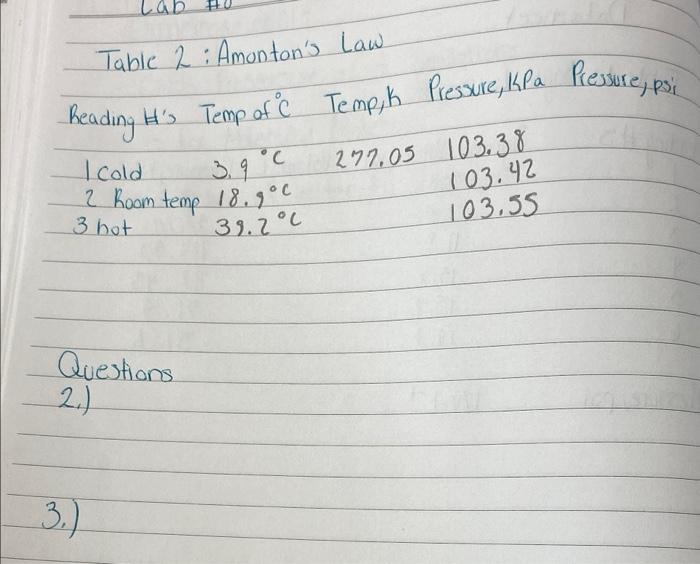 Lab #6
Table 2 : Amonton's Law
Reading #'s Temp of °C Temp, K Pressure, KPa Pressure, psi
1 Cold 3.9 °C 277.05 103.38
2 Room temp 18.9 °C 103.42
3 hot 39.2 °C 103.55
Questions
2.)
3.)